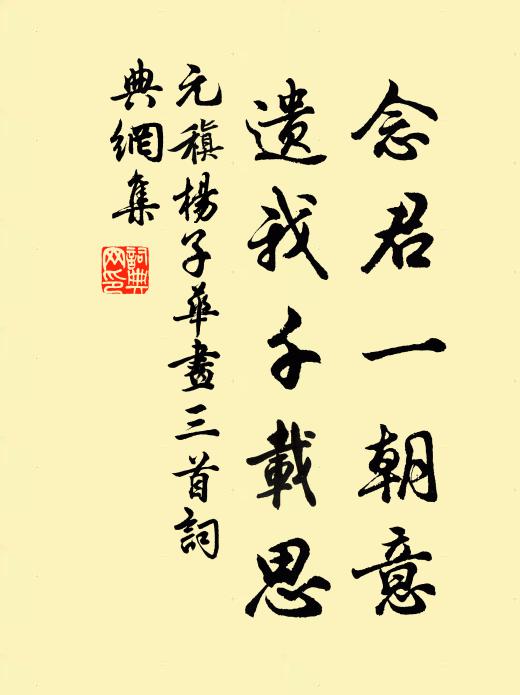 念君一朝意
遺我千載思
元稹楊子華畫三首詞
典網集
詞典網印